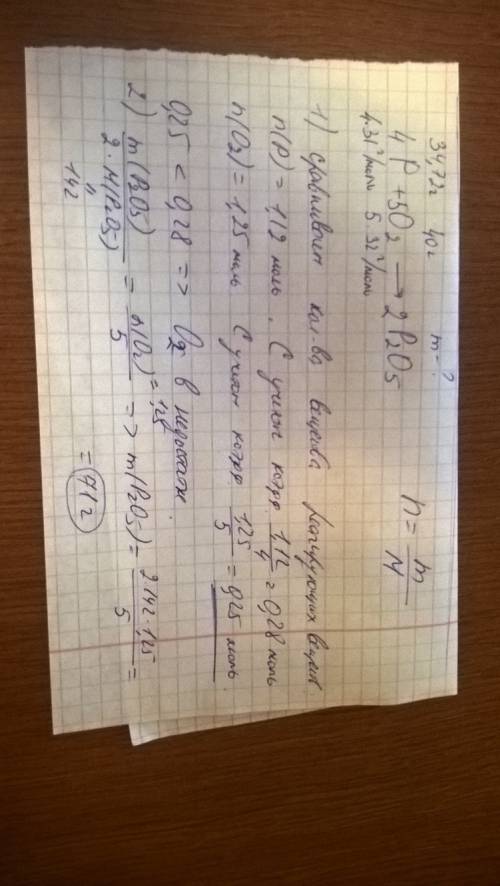 34,72г 40г m - ?
4P + 5O2 → 2P2O5 n = m/M
4·31 г/моль 5·32 г/моль
1) сравниваем кол-во вещества реагирующих веществ.
n(P) = 1,12 моль. С учетом коэфф. 1,12/4 = 0,28 моль
n(O2) = 1,25 моль С учетом коэфф 1,25/5 = 0,25 моль.
0,25 < 0,28 => O2 в недостатке.
2) m(P2O5)/2·M(P2O5) = n(O2)/5 => m(P2O5) = 2·142·1,25/5 =
" = 1,25
142 = 71г